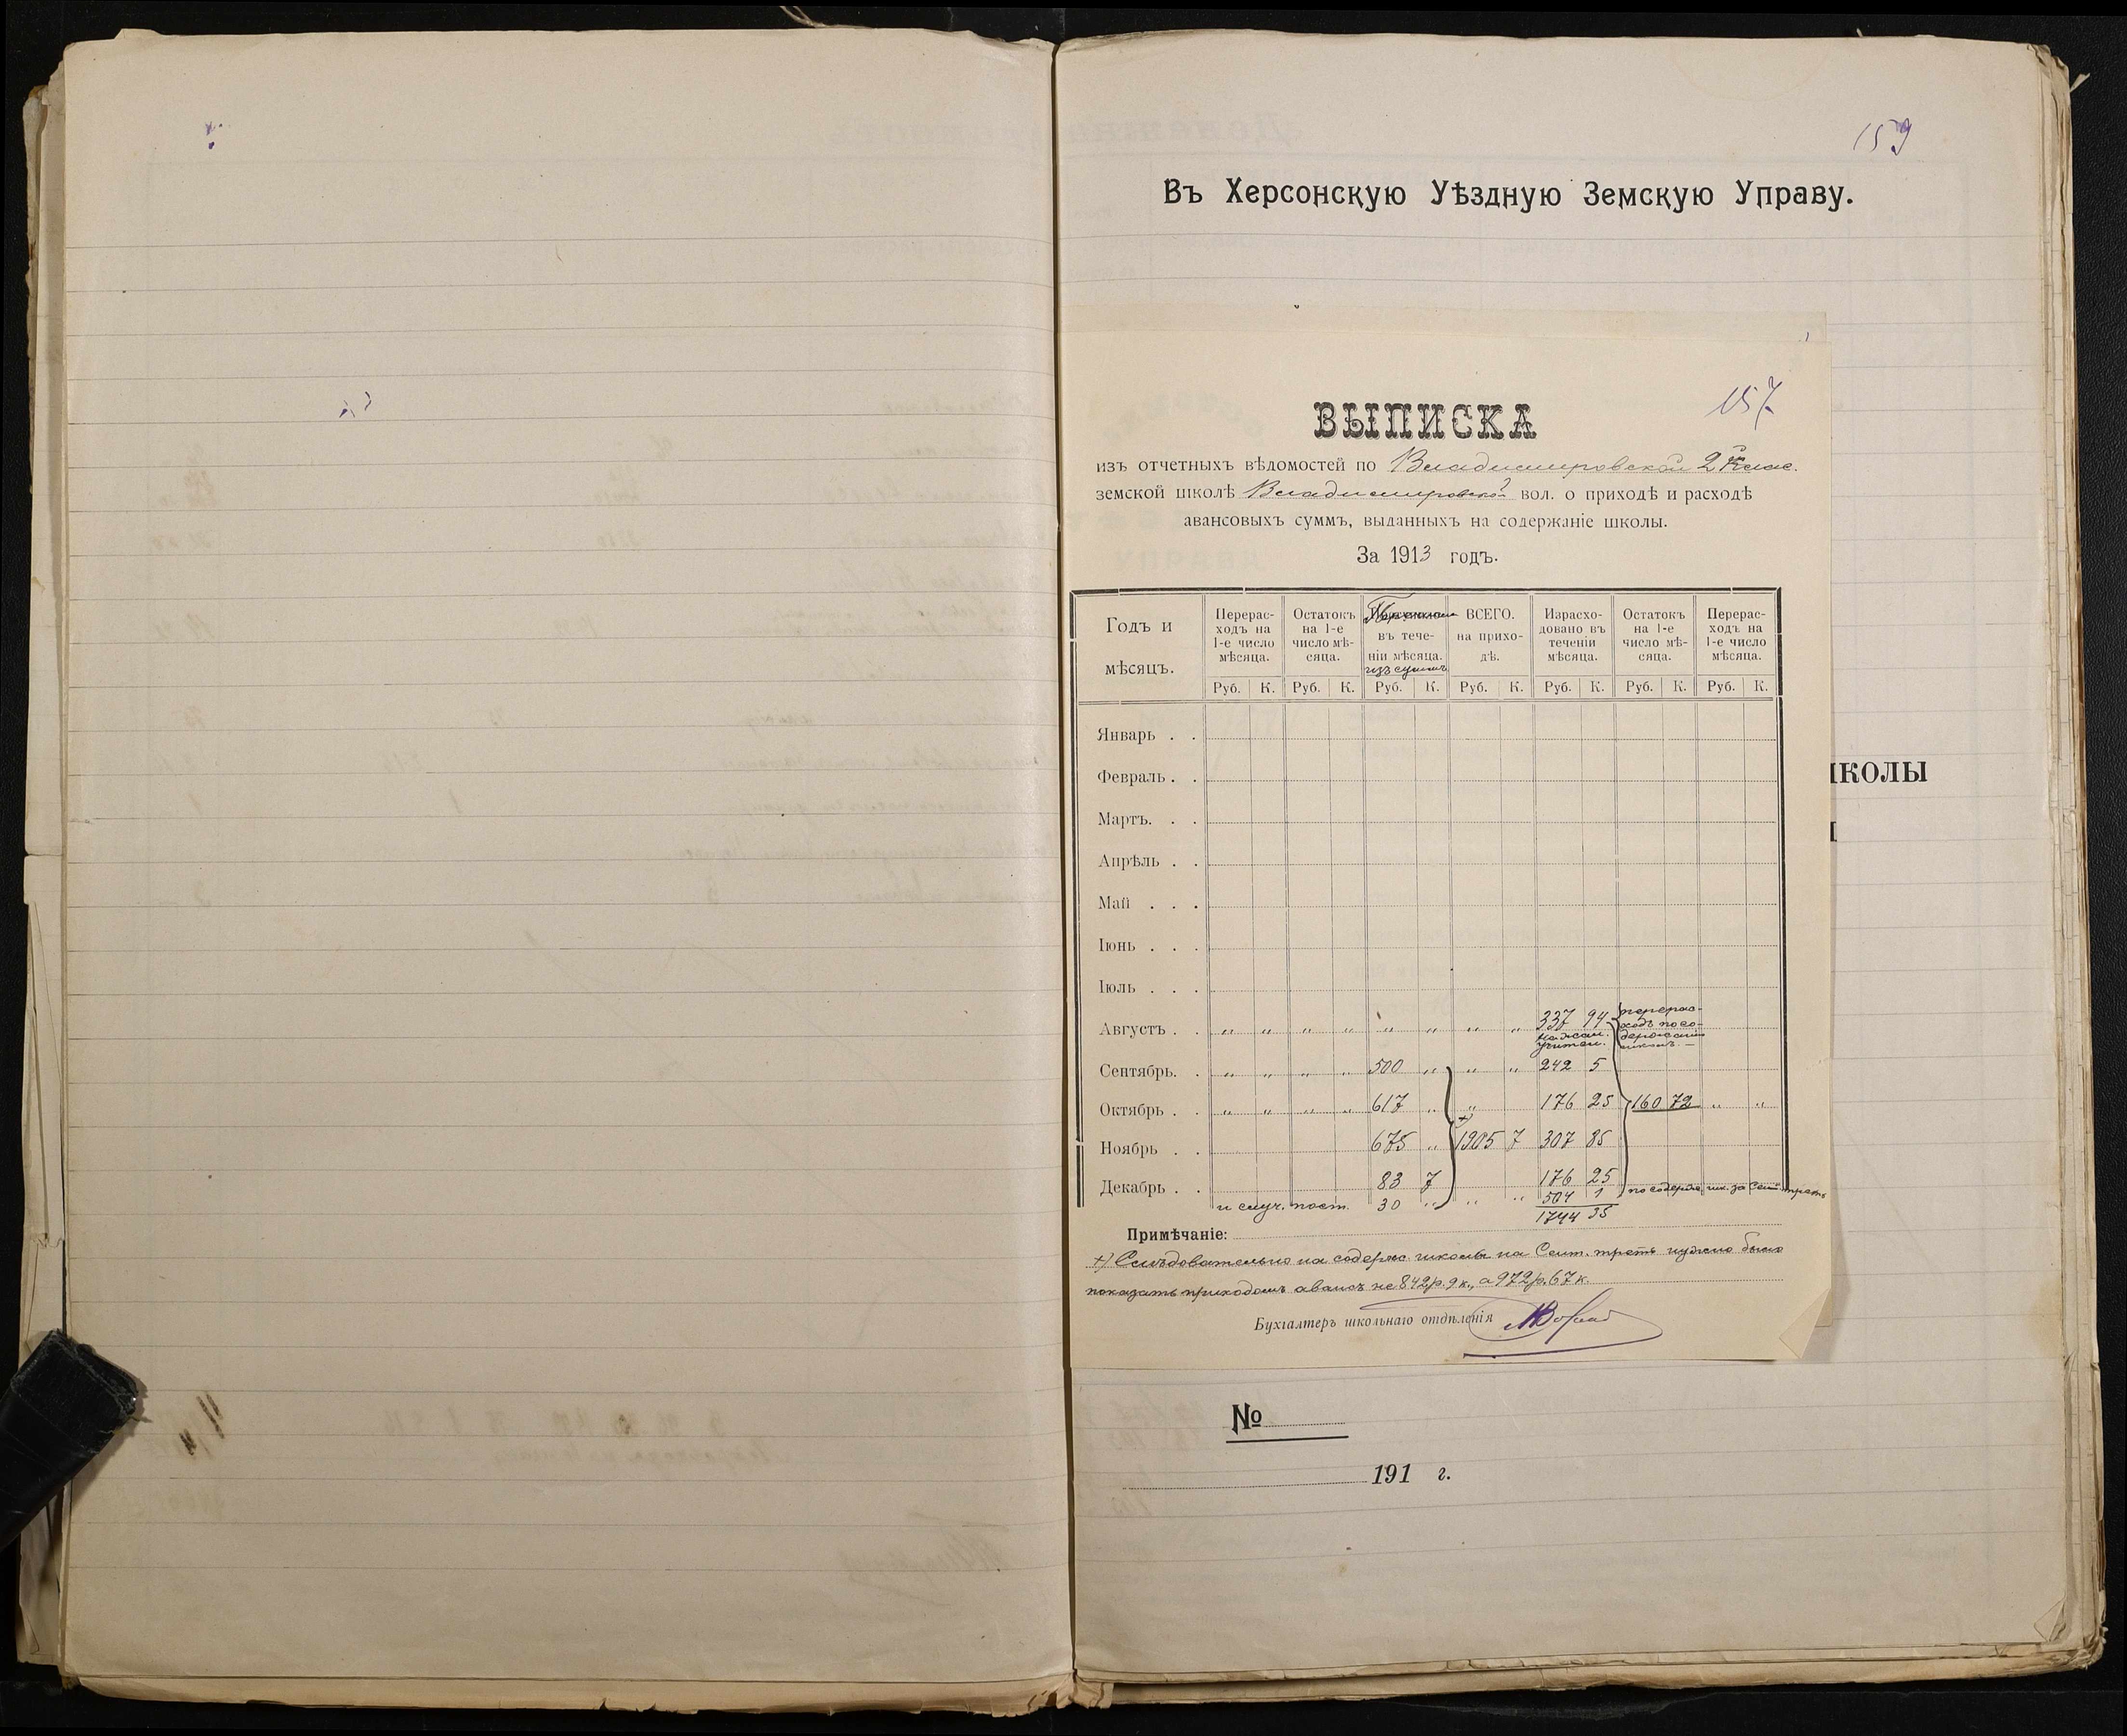 159
Въ Херсонскую Уѣздную Земскую Управу.
157
ВЫПИСКА
изъ отчетныхъ вѣдомостей по Владимировской 2х клас.
земской школѣ Владимировской вол. о приходѣ и расходѣ
авансовыхъ суммъ, выданныхъ на содержаніе школы.
За 1913 годъ.
Годъ и мѣсяцъ.
Перерас-ходъ на 1-е число мѣсяца.
Остатокъ на 1-е число мѣ-сяца.
въ тече-ніи мѣсяца. изъ суммъ
ВСЕГО. на прихо-дѣ.
Израсхо-довано въ теченіи мѣсяца.
Остатокъ на 1-е число мѣ-сяца.
Перерас-ходъ на 1-е число мѣсяца.
Руб. К. Руб. К. Руб. К. Руб. К. Руб. К. Руб. К. Руб. К.
Январь . .
Февраль . .
Мартъ. . .
Апрѣль . .
Май . . .
Іюнь . . .
Іюль . . .
Августъ . . „ „ „ „ „ „ „ „ 337 94 перерас-
ходъ по со-
держанію
на жал.
учител.
Сентябрь. . „ „ „ „ 500 „ „ „ 242 5
Октябрь . . „ „ „ „ 617 „ „ 176 25 160 72 „ „
Ноябрь . . 675 „ +) 1905 7 307 85
Декабрь . . 83 7 176 25
и случ. пост. 30 „ „ „ 504 1 по содерж. шк. за Сент. треть
1744 35
Примѣчаніе:
+) Слѣдовательно на содерж. школы на Сент. треть нужно было
показать приходомъ авансъ не 842р. 9к., а 972р. 67к.
Бухгалтеръ школьнаго отдѣленія
КОЛЫ
№
191 г.